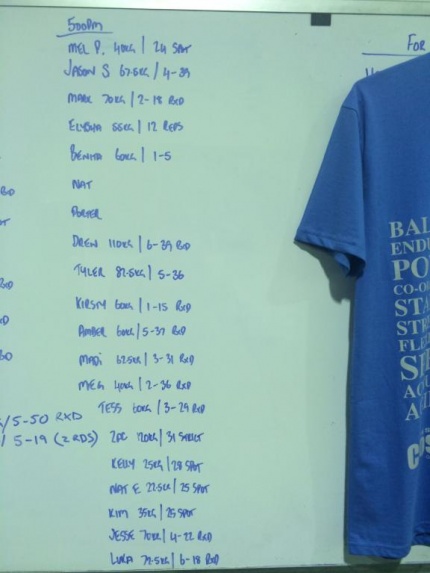 500PM
MEL P. 40KG | 24 SPOT
JASON S 67.5KG / 4-39
MARK 70KG | 2-18 RXD
ELYSHA 55KG | 12 REPS
BENITA 60KG | 1-5
NAT
PORTER
DREW 110KG | 6-39 RXD
TYLER 87.5KG | 5-36
KIRSTY 60KG | 1-15 RXD
AMBER 60KG / 5-37 RXD
MADI 62.5KG | 3-31 RXD
MEG 40KG | 2-36 RXD
TESS 60KG | 3-29 RXD
/5-50 RXD
/ 5-19 (2 RDS)
ZOE 120KG | 31 STRICT
KELLY 25KG | 28 SPOT
NAT E 22.5KG | 25 SPOT
KIM 35KG | 25 SPOT
JESSE 70KG | 4-22 RXD
LUKA 77.5KG | 6-18 RXD
FOR
BAL
ENDU
PO
CO-O
STA
STR
FLE
AC